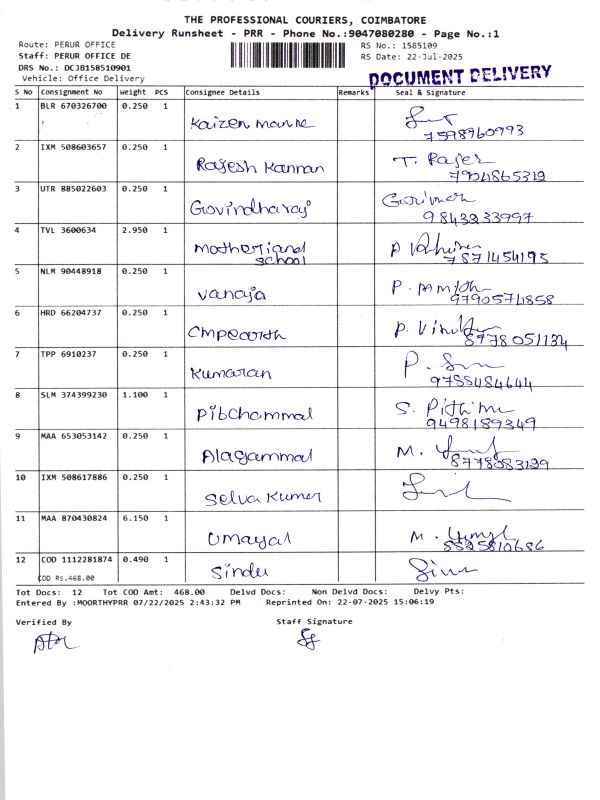 THE PROFESSIONAL COURIERS, COIMBATORE
Delivery Runsheet - PRR - Phone No.:9047080280 - Page No.:1
Route: PERUR OFFICE
Staff: PERUR OFFICE DE
DRS No.: DCJB158510901
Vehicle: Office Delivery
RS No.: 1585109
RS Date: 22-Jul-2025
DOCUMENT DELIVERY
S No Consignment No Weight PCS Consignee Details Remarks Seal & Signature
1 BLR 670326700 0.250 1 Kaizen
7598960993
2 IXM 508603657 0.250 1 Rajesh Kannan
7904865312
3 UTR 885022603 0.250 1 Govindharaj
9843233997
4 TVL 3600634 2.950 1 motherland
school
7871454195
5 NLM 90448918 0.250 1 vanaja P.
9790574858
6 HRD 66204737 0.250 1 P.
8778051134
7 TPP 6910237 0.250 1 Kumaran P.
9788484644
8 SLM 374399230 1.100 1 Pitchammal S.
9498189349
9 MAA 653053142 0.250 1 Alagammal M.
8778083199
10 IXM 508617886 0.250 1 Selva Kumer
11 MAA 870430824 6.150 1 Umayal M.
8825810686
12 COD 1112281874 0.490 1 Sindu
COD RS.468.00
Tot Docs: 12 Tot COD Amt: 468.00 Delvd Docs: Non Delvd Docs: Delvy Pts:
Entered By :MOORTHYPRR 07/22/2025 2:43:32 PM Reprinted On: 22-07-2025 15:06:19
Verified By Staff Signature